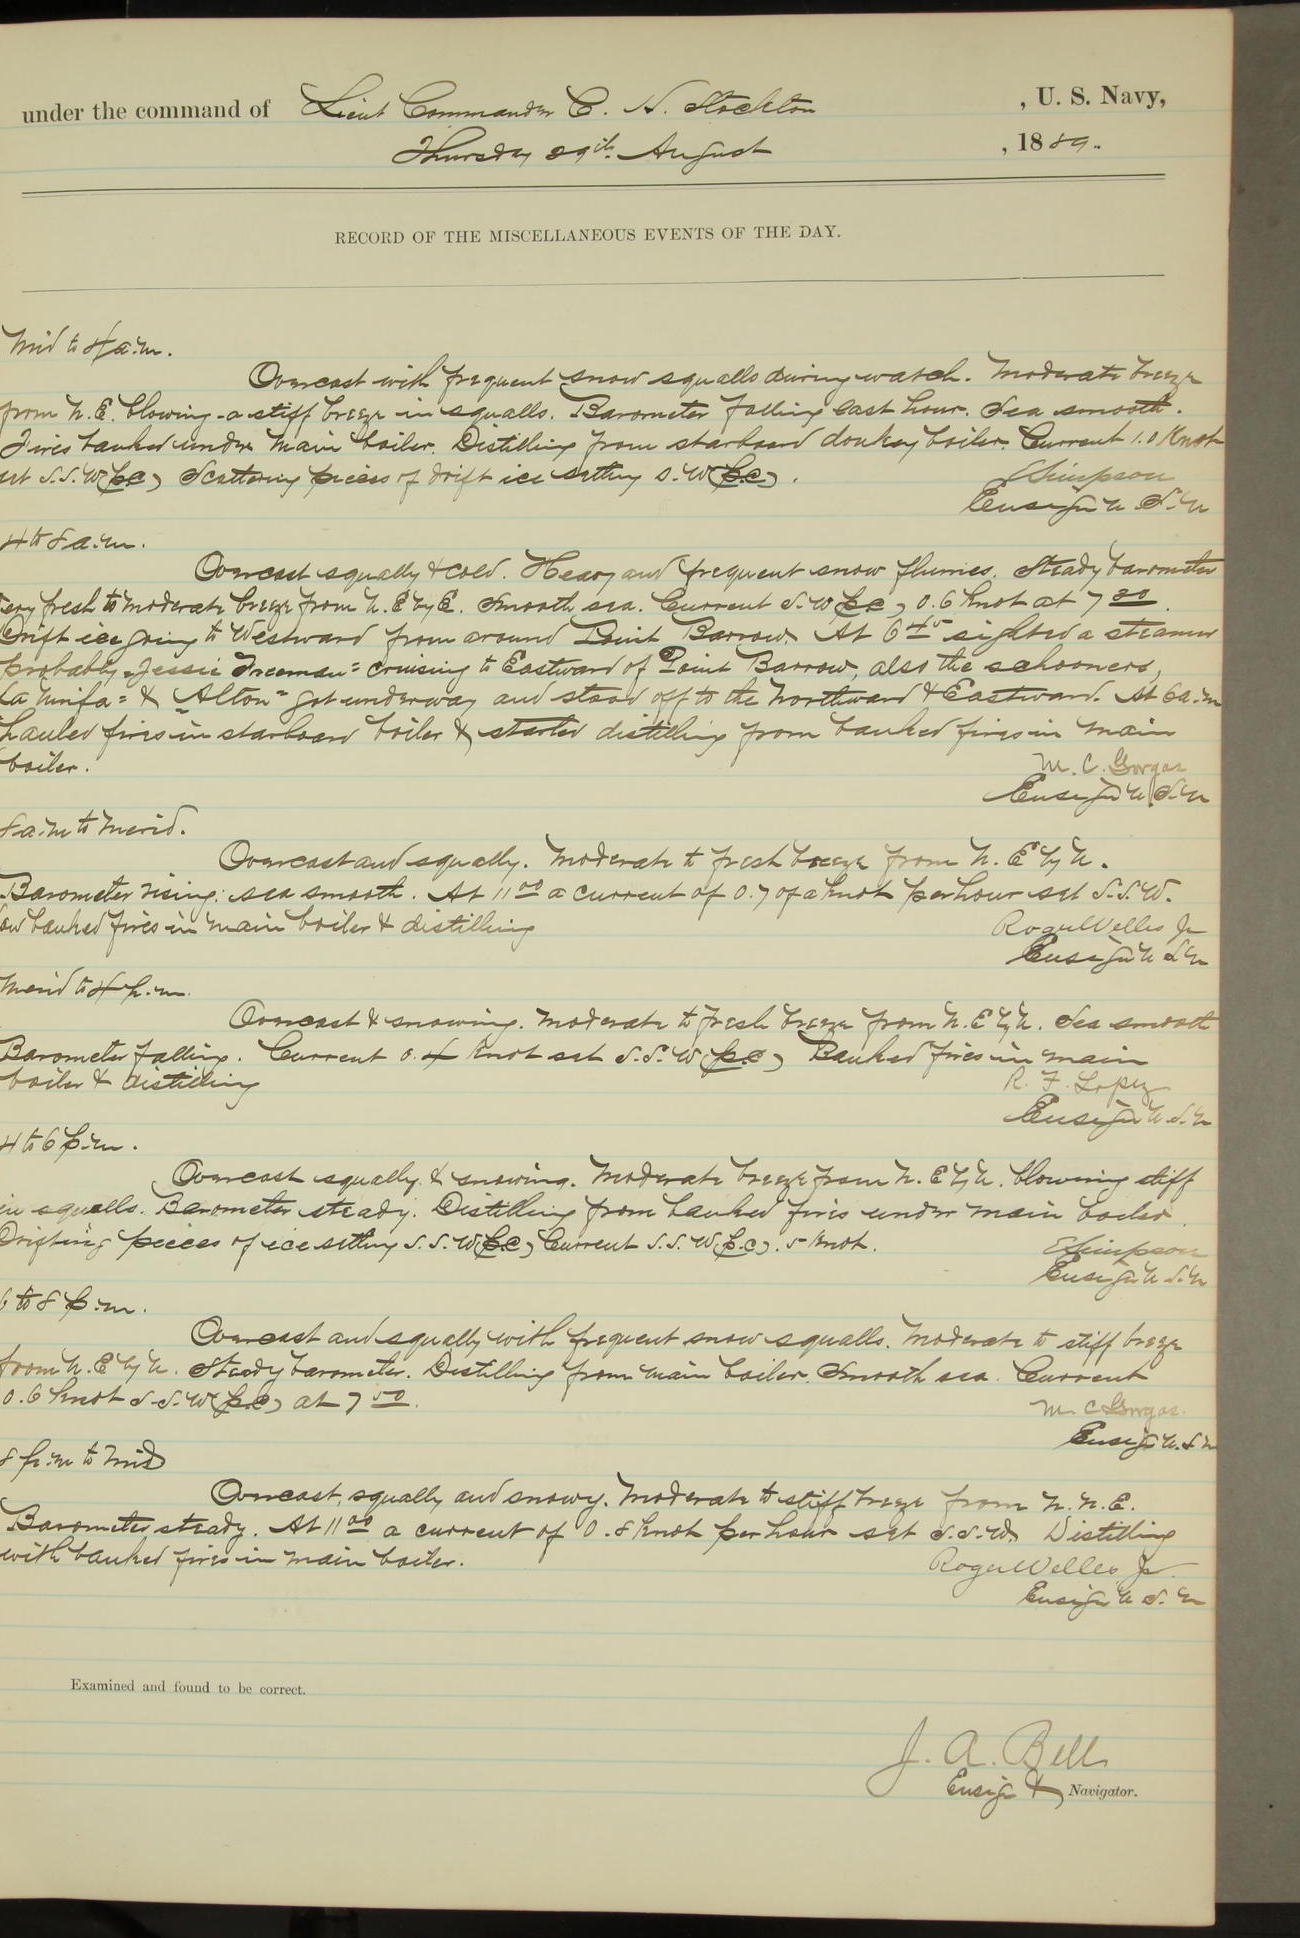 under the command of Lieut Commander C. H. Stockton, U. S. Navy,
Thursday 29th August, 1889.
RECORD OF THE MISCELLANEOUS EVENTS OF THE DAY.
Mid to 4 a.m.
Overcast with frequent snow squalls during watch. Moderate breeze
from N. E. blowing a stiff breeze in squalls. Barometer falling last hour. Sea smooth.
Fires banked under main boiler. Distilling from starboard donkey boiler. Current 1.0 Knot
set S.S.W (p.c) Scattering pieces of drift ice setting S.W (p.c).
E Simpson
Ensign U.S.N
4 to 8 a.m.
Overcast squally & cold. Heavy and frequent snow flurries. Steady barometer
Very fresh to moderate breeze from N. E by E. Smooth sea. Current S.W (p.c) 0.6 knot at 7 30.
Drift ice going to Westward from around Point Barrow. At 6 45 sighted a steamer
probably "Jessie Freeman" cruising to Eastward of Point Barrow, also the schooners,
"La Ninfa" & "Alton" got underway and stood off to the Northward & Eastward. At 6 a.m
hauled fires in starboard boiler & started distilling from banked fires in main
boiler.
M. C. Gorgas
Ensign U.S.N
8 a.m to Merid.
Overcast and squally. Moderate to fresh breeze from N. E by N.
Barometer rising: sea smooth. At 11 00 a current of 0.7 of a knot per hour set S.S.W.
banked fires in main boiler & distilling
Roger Welles Jr
Ensign U.S.N
Merid to 4 p.m.
Overcast & snowing. Moderate to fresh breeze from N. E by N. Sea smooth
Barometer falling. Current 0.4 knot set S.S.W (p.c) Banked fires in main
boiler & distilling
R. F. Lopez
Ensign U.S.N
4 to 6 p.m.
Overcast squally & snowing. Moderate breeze from N. E by N. blowing stiff
in squalls. Barometer steady. Distilling from banked fires under main boiler.
Drifting pieces of ice setting S.S.W (p.c) Current S.S.W. (p.c) .5 knot.
E Simpson
Ensign U.S.N
6 to 8 p.m.
Overcast and squally with frequent snow squalls. Moderate to stiff breeze
from N. E by N. Steady barometer. Distilling from main boiler. Smooth sea. Current
0.6 knot S.S.W (p.c) at 7 50.
M. C Gorgas.
Ensign U.S.N
8 p.m to Mid
Overcast, squally and snowy. Moderate to stiff breeze from N.N.E.
Barometer steady. At 11 00 a current of 0.8 knot per hour set S.S.W. Distilling
with banked fires in main boiler.
Roger Welles Jr.
Ensign U.S.N
Examined and found to be correct.
J. A. Bell
Ensign & Navigator.